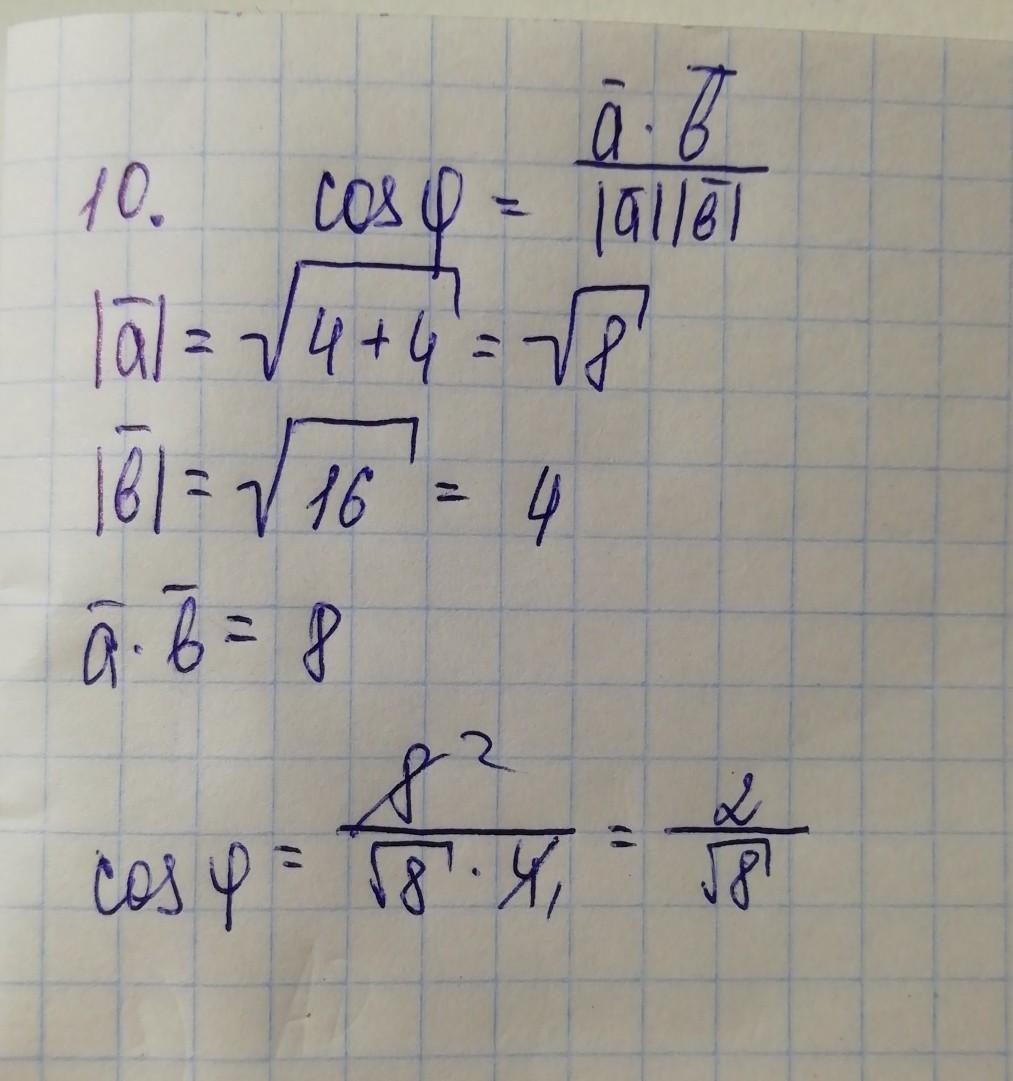 10. cos φ = ā · b̄ / |ā||b̄|
|ā| = √4+4 = √8
|b̄| = √16 = 4
ā · b̄ = 8
cos φ = 8 2 / √8 · 4 1 = 2 / √8